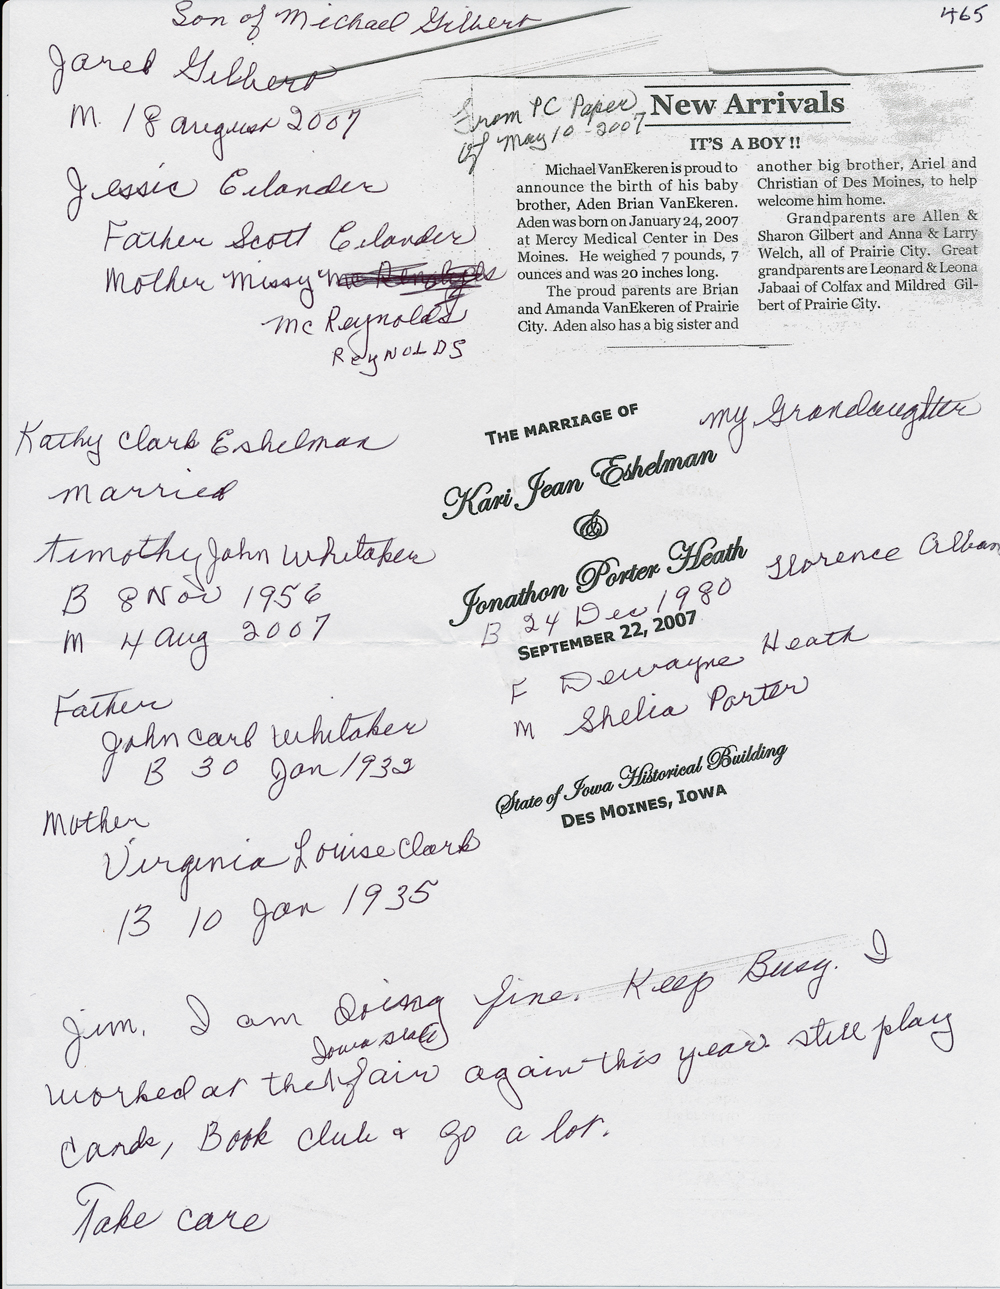 465
Son of Michael Gilbert
Jared Gilbert
M. 18 august 2007
Jessie Eilander
Father Scott Eilander
Mother Missy
Mc Reynolds
REYNOLDS
From PC Paper
of May 10 - 2007
New Arrivals
IT'S A BOY !!
Michael VanEkeren is proud to
announce the birth of his baby
brother, Aden Brian VanEkeren.
Aden was born on January 24, 2007
at Mercy Medical Center in Des
Moines. He weighed 7 pounds, 7
ounces and was 20 inches long.
The proud parents are Brian
and Amanda VanEkeren of Prairie
City. Aden also has a big sister and
another big brother, Ariel and
Christian of Des Moines, to help
welcome him home.
Grandparents are Allen &
Sharon Gilbert and Anna & Larry
Welch, all of Prairie City. Great
grandparents are Leonard & Leona
Jabaai of Colfax and Mildred Gil-
bert of Prairie City.
Kathy Clark Eshelman
married
Timothy John Whitaker
B 8 Nov 1956
M 4 Aug 2007
Father
John Carl Whitaker
B 30 Jan 1932
Mother
Virginia Louise Clark
B 10 Jan 1935
THE MARRIAGE OF
my Grandaughter
Kari Jean Eshelman
&
Jonathon Porter Heath
Florence Alban
B 24 Dec 1980
SEPTEMBER 22, 2007
F Dewayne Heath
M Shelia Porter
State of Iowa Historical Building
DES MOINES, IOWA
Jim. I am doing fine. Keep Busy. I
Iowa State
worked at the fair again this year still play
Cards, Book Club & go a lot.
Take care